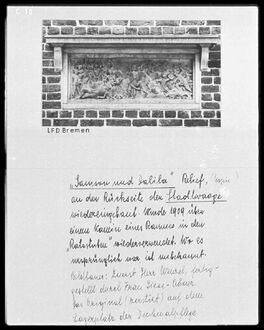 LFD Bremen
„Samson und Dalila" Relief,
an der Rückseite der Stadtwaage
wiedereingebaut. Wurde 1909 über
einem Kamin eines Raumes in den
„Ratsstuben" wiederverwendet. Wo es
ursprünglich war ist unbekannt.
Bildhauer: Zuerst Herr Wurzel, fertig-
gestellt durch Frau
Das Original (zerstört) auf dem
Lagerplatz der Denkmalpflege